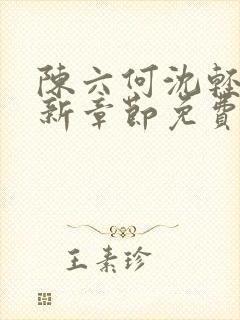 陳六何沈輕
新章節免費
王素珍